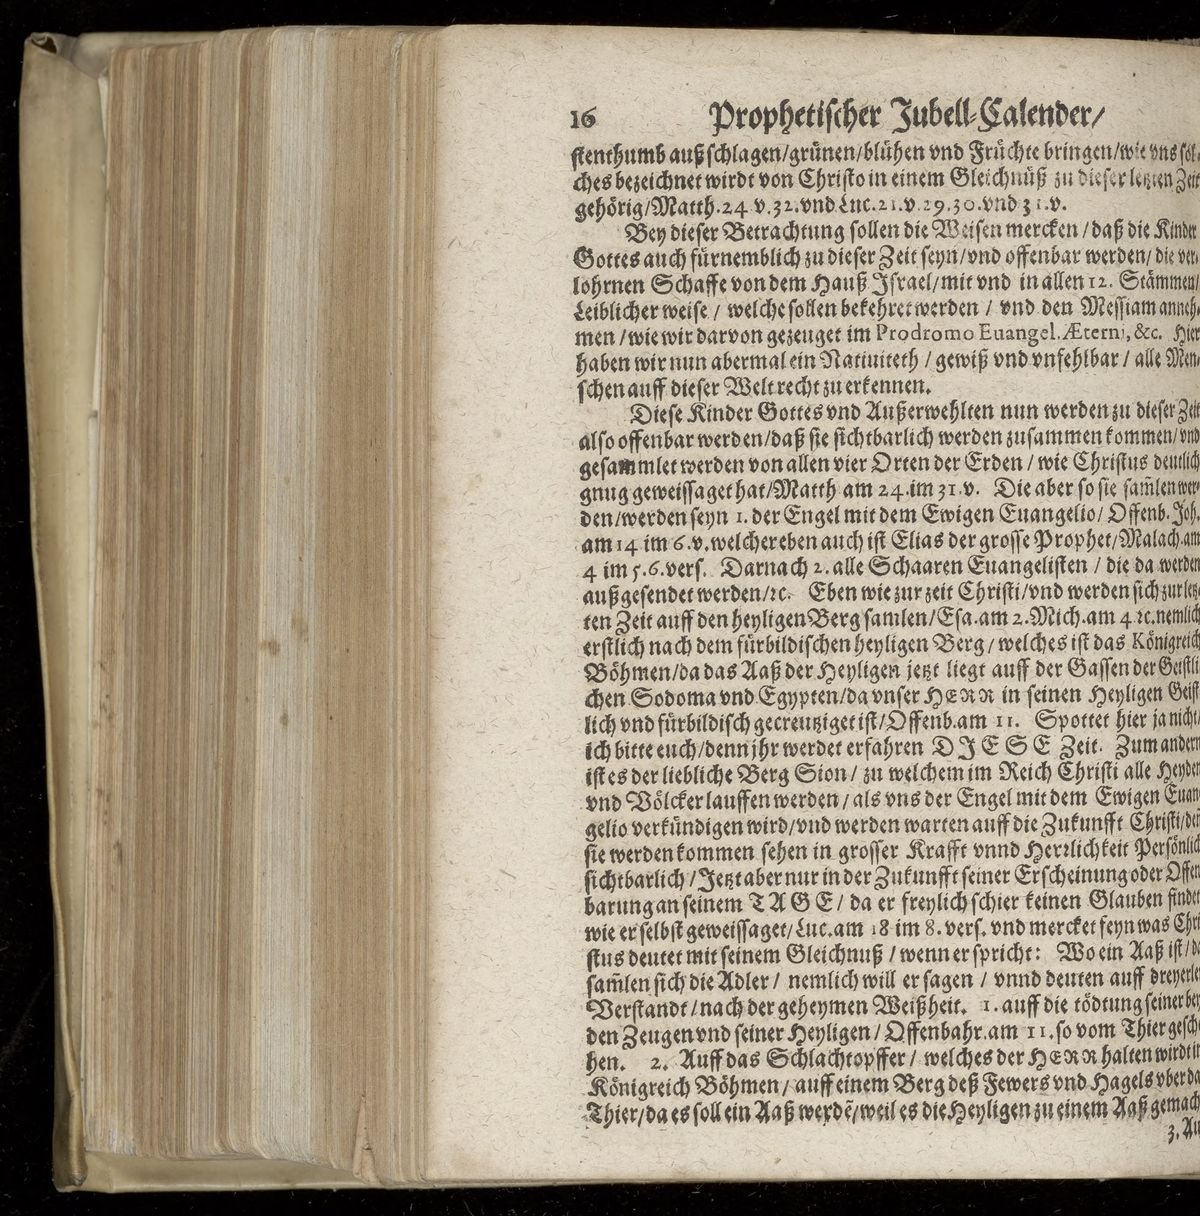 16 Prophetischer Jubell-Calender/
stenthumb außschlagen/grünen/blühen vnd Früchte bringen/wie vns sol-
ches bezeichnet wirdt von Christo in einem Gleichnüß zu dieser letzten Zeit
gehörig/Matth.24 v.32.vnd Luc.21.v.29.30.vnd 31.v.
Bey dieser Betrachtung sollen die Weisen mercken/daß die Kinder
Gottes auch fürnemblich zu dieser Zeit seyn/vnd offenbar werden/die ver-
lohrnen Schaffe von dem Hauß Israel/mit vnd in allen 12. Stämmen/
Leiblicher weise/ welche sollen bekehret werden / vnd den Messiam anneh-
men/wie wir darvon gezeuget im Prodromo Euangel. Æterni, &c. Hier
haben wir nun abermal ein Natiuiteth/ gewiß vnd vnfehlbar/ alle Men-
schen auff dieser Welt recht zu erkennen.
Diese Kinder Gottes vnd Außerwehlten nun werden zu dieser Zeit
also offenbar werden/daß sie sichtbarlich werden zusammen kommen/vnd
gesammlet werden von allen vier Orten der Erden/ wie Christus deutlich
gnug geweissaget hat/Matth am 24.im 31.v. Die aber so sie sam̃len wer-
den/werden seyn 1. der Engel mit dem Ewigen Euangelio/ Offenb. Joh.
am 14 im 6.v.welcher eben auch ist Elias der grosse Prophet/Malach.am
4 im 5.6.vers. Darnach 2. alle Schaaren Euangelisten / die da werden
außgesendet werden/ꝛc. Eben wie zur zeit Christi/vnd werden sich zur letz-
ten Zeit auff den heyligen Berg samlen/Esa.am 2.Mich.am 4 ꝛc.nemlich
erstlich nach dem fürbildischen heyligen Berg/ welches ist das Königreich
Böhmen/da das Aaß der Heyligen jetzt liegt auff der Gassen der Geistli
chen Sodoma vnd Egypten/da vnser HERR in seinen Heyligen Geist
lich vnd fürbildisch gecreutziget ist/Offenb.am 11. Spottet hier ja nicht/
ich bitte euch/denn jhr werdet erfahren DIESE Zeit. Zum andern
ist es der liebliche Berg Sion/ zu welchem im Reich Christi alle Heyden
vnd Völcker lauffen werden/ als vns der Engel mit dem Ewigen Euan
gelio verkündigen wird/vnd werden warten auff die Zukunfft Christi/den
sie werden kommen sehen in grosser Krafft vnnd Herrlichkeit Persönlich
sichtbarlich/Jetzt aber nur in der Zukunfft seiner Erscheinung oder Offen
barung an seinem TAGE/ da er freylich schier keinen Glauben findet
wie er selbst geweissaget/Luc.am 18 im 8.vers.vnd mercket feyn was Chri
stus deutet mit seinem Gleichnuß/wenn er spricht: Wo ein Aaß ist/da
sam̃len sich die Adler/ nemlich will er sagen / vnnd deuten auff dreyerley
Verstandt/nach der geheymen Weißheit. 1. auff die tödtung seiner bey
den Zeugen vnd seiner Heyligen/Offenbahr.am 11.so vom Thier gesche
hen. 2. Auff das Schlachtopffer/ welches der HERR halten wirdt im
Königreich Böhmen/auff einem Berg deß Fewers vnd Hagels vber da
Thier/da es soll ein Aaß werdẽ/weil es die Heyligen zu einem Aaß gemach
3. Au